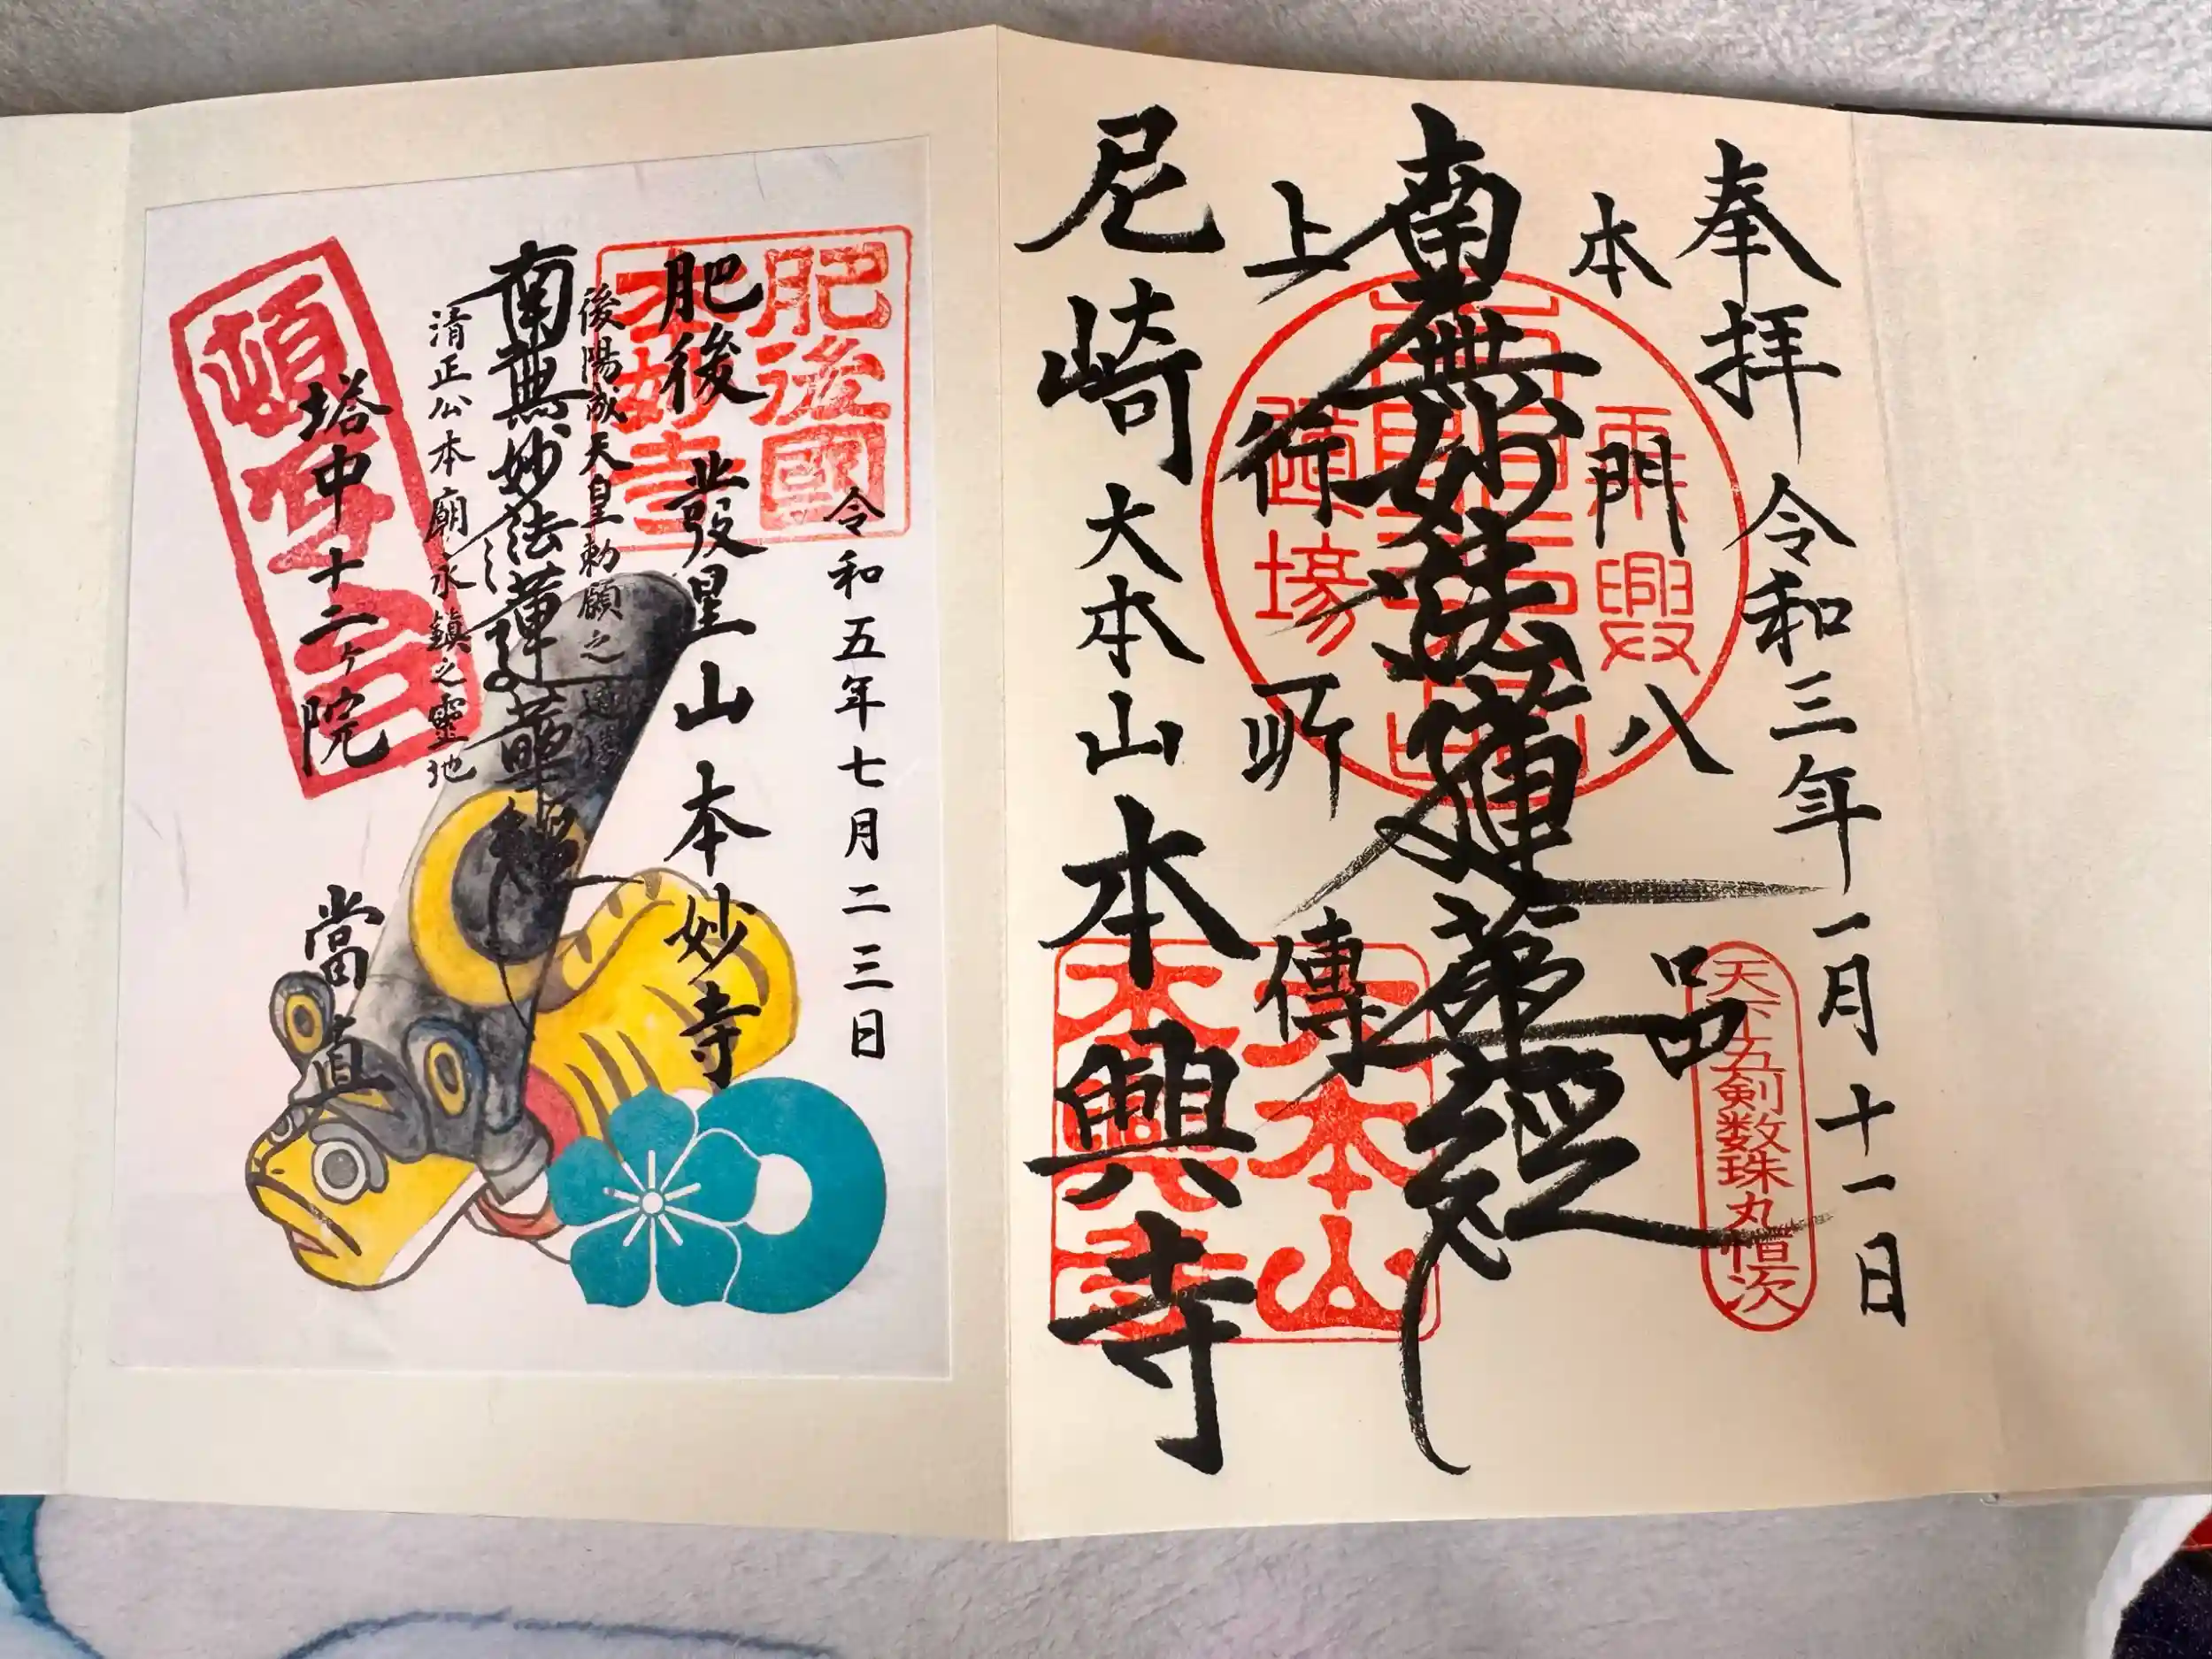 奉拝 令和三年一月十一日
本門八品
南無妙法蓮華経
上行所傳
尼崎 大本山 本興寺
天下五剣数珠丸恒次
大本山
本興寺
令和五年七月二三日
肥後國
本妙寺
肥後 發星山 本妙寺
後陽成天皇勅願之道場
南無妙法蓮華経
清正公本廟永鎮之靈地
塔中十二ヶ院 當直
頓写会